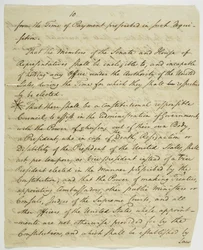 10
from the Time of Payment prescribed in such Requi-
sition.
That the Members of the Senate and House of
Representatives shall be ineligible to, and incapable
of holding any Office under the Authority of the United
States during the Time for which they shall
be elected.
That there shall be a constitutional responsible
Council, to assist in the Administration of Government,
with the Power of chusing out of their own Body,
a President who in case of Death, Resignation or
Disability of the President of the United States shall
act pro tempore, as Vice President instead of a Vice
President elected in the Manner prescribed by the
Constitution; and that the Power of making Treaties,
appointing Ambassadors, other public Ministers or
Consuls, Judges of the Supreme Courts, and all
other Officers of the United States whose appoint-
ments are not otherwise provided for by the
Constitution, and which shall be established by
Law